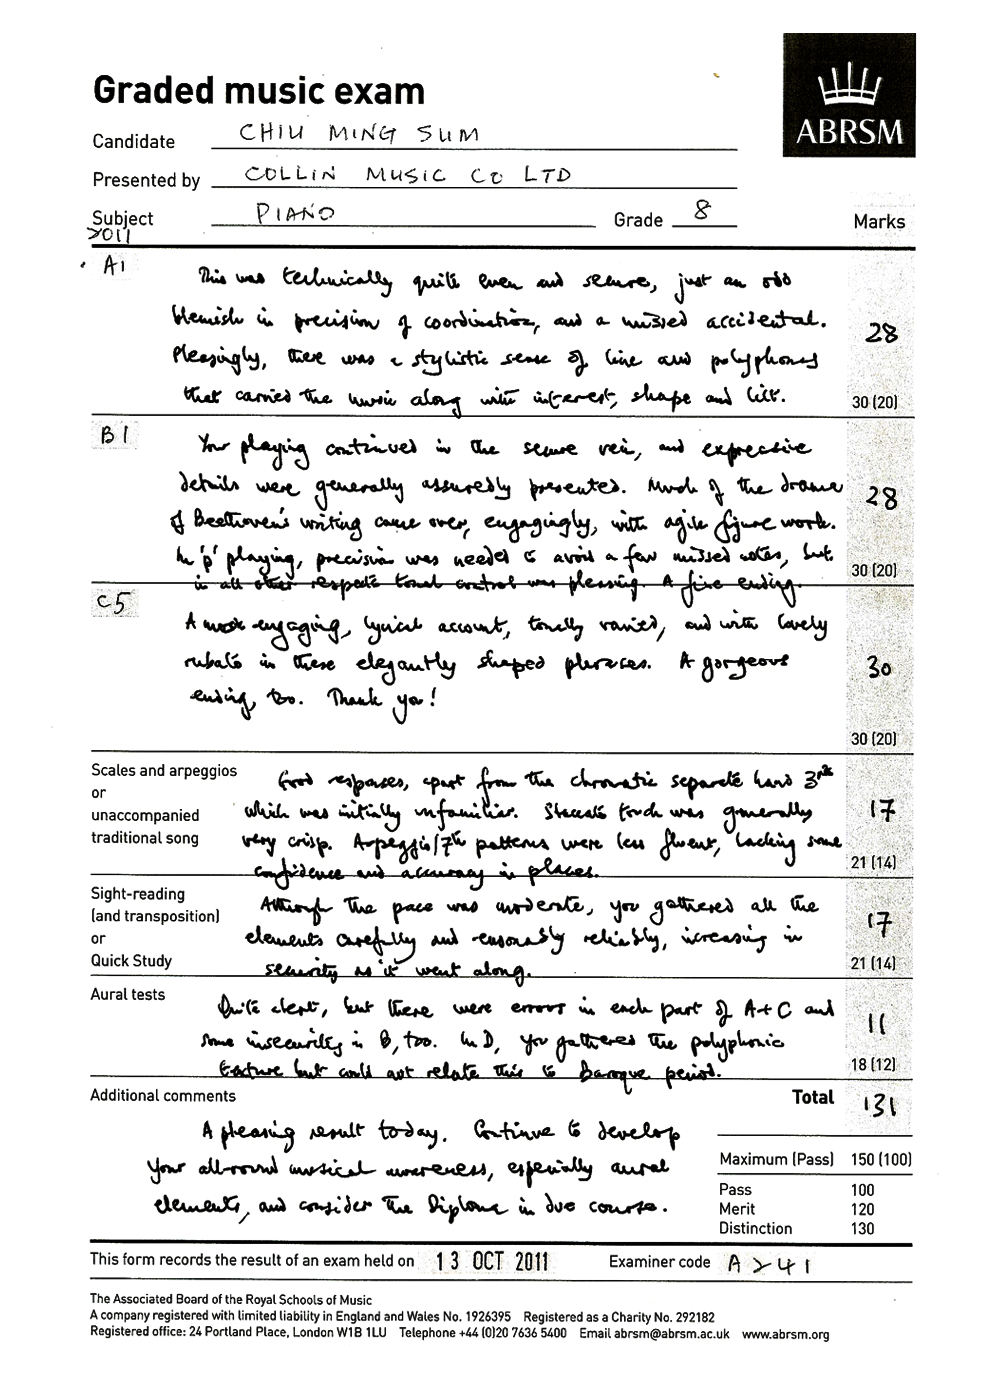 Graded music exam
ABRSM
Candidate CHIU MING SUM
Presented by COLLIN MUSIC CO LTD
Subject PIANO Grade 8 Marks
2011
A1
This was technically quite even and secure, just an odd
blemish in precision of coordination, and a missed accidental.
28
Pleasingly, there was a stylistic sense of line and polyphony
that carried the music along with interest, shape and lilt.
30 (20)
B1
Your playing continued in the secure vein, and expressive
details were generally assuredly presented. Much of the drama
28
of Beethoven's writing came over, engagingly, with agile figure work.
In 'p' playing, precision was needed to avoid a few missed notes, but
30 (20)
in all other respects tonal control was pleasing. A fine ending.
C5
A most engaging, lyrical account, tonally varied, and with lovely
rubato in these elegantly shaped phrases. A gorgeous
30
ending, too. Thank you!
30 (20)
Scales and arpeggios
or
unaccompanied
traditional song
Good responses, apart from the chromatic separate hand 3rds
which was initially unfamiliar. Staccato touch was generally
17
very crisp. Arpeggio/7th patterns were less fluent, lacking some
21 (14)
confidence and accuracy in places.
Sight-reading
(and transposition)
or
Quick Study
Although the pace was moderate, you gathered all the
17
elements carefully and reasonably reliably, increasing in
21 (14)
security as it went along.
Aural tests
Quite alert, but there were errors in each part of A+C and
11
some insecurity in B, too. In D, you gathered the polyphonic
18 (12)
texture but could not relate this to Baroque period.
Additional comments
Total 131
A pleasing result today. Continue to develop
your all-round musical awareness, especially aural
elements, and consider the Diploma in due course.
Maximum (Pass) 150 (100)
Pass 100
Merit 120
Distinction 130
This form records the result of an exam held on 13 OCT 2011 Examiner code A241
The Associated Board of the Royal Schools of Music
A company registered with limited liability in England and Wales No. 1926395 Registered as a Charity No. 292182
Registered office: 24 Portland Place, London W1B 1LU Telephone +44 (0)20 7636 5400 Email abrsm@abrsm.ac.uk www.abrsm.org